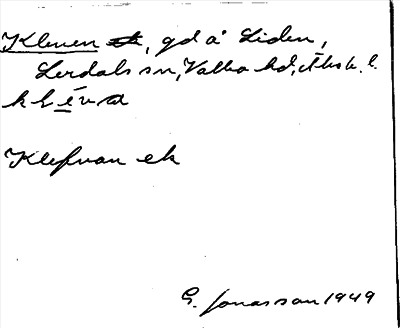 Kleven, gd å Liden,
Lerdals sn, Valbo hd, Älvsb. l.
kléva
Klefvan ek
G. Jonasson 1949